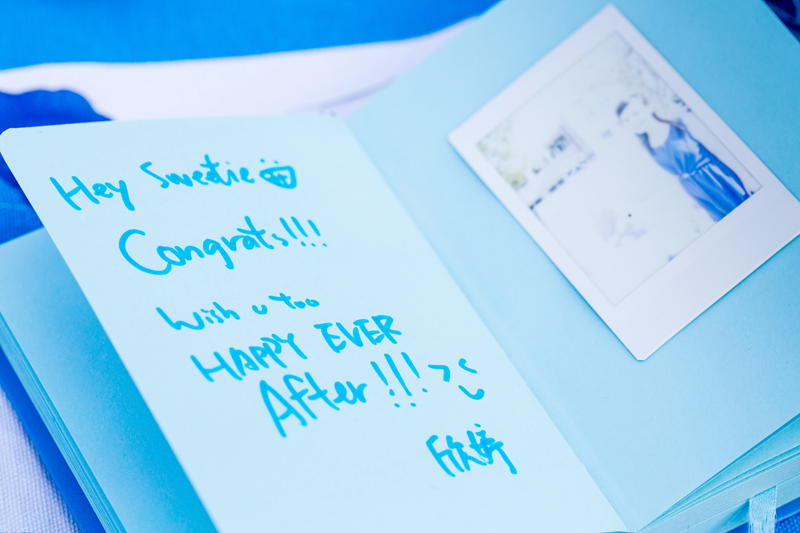 Hey Sweetie
Congrats!!!
Wish u too
HAPPY EVER
After!!!
欣婷